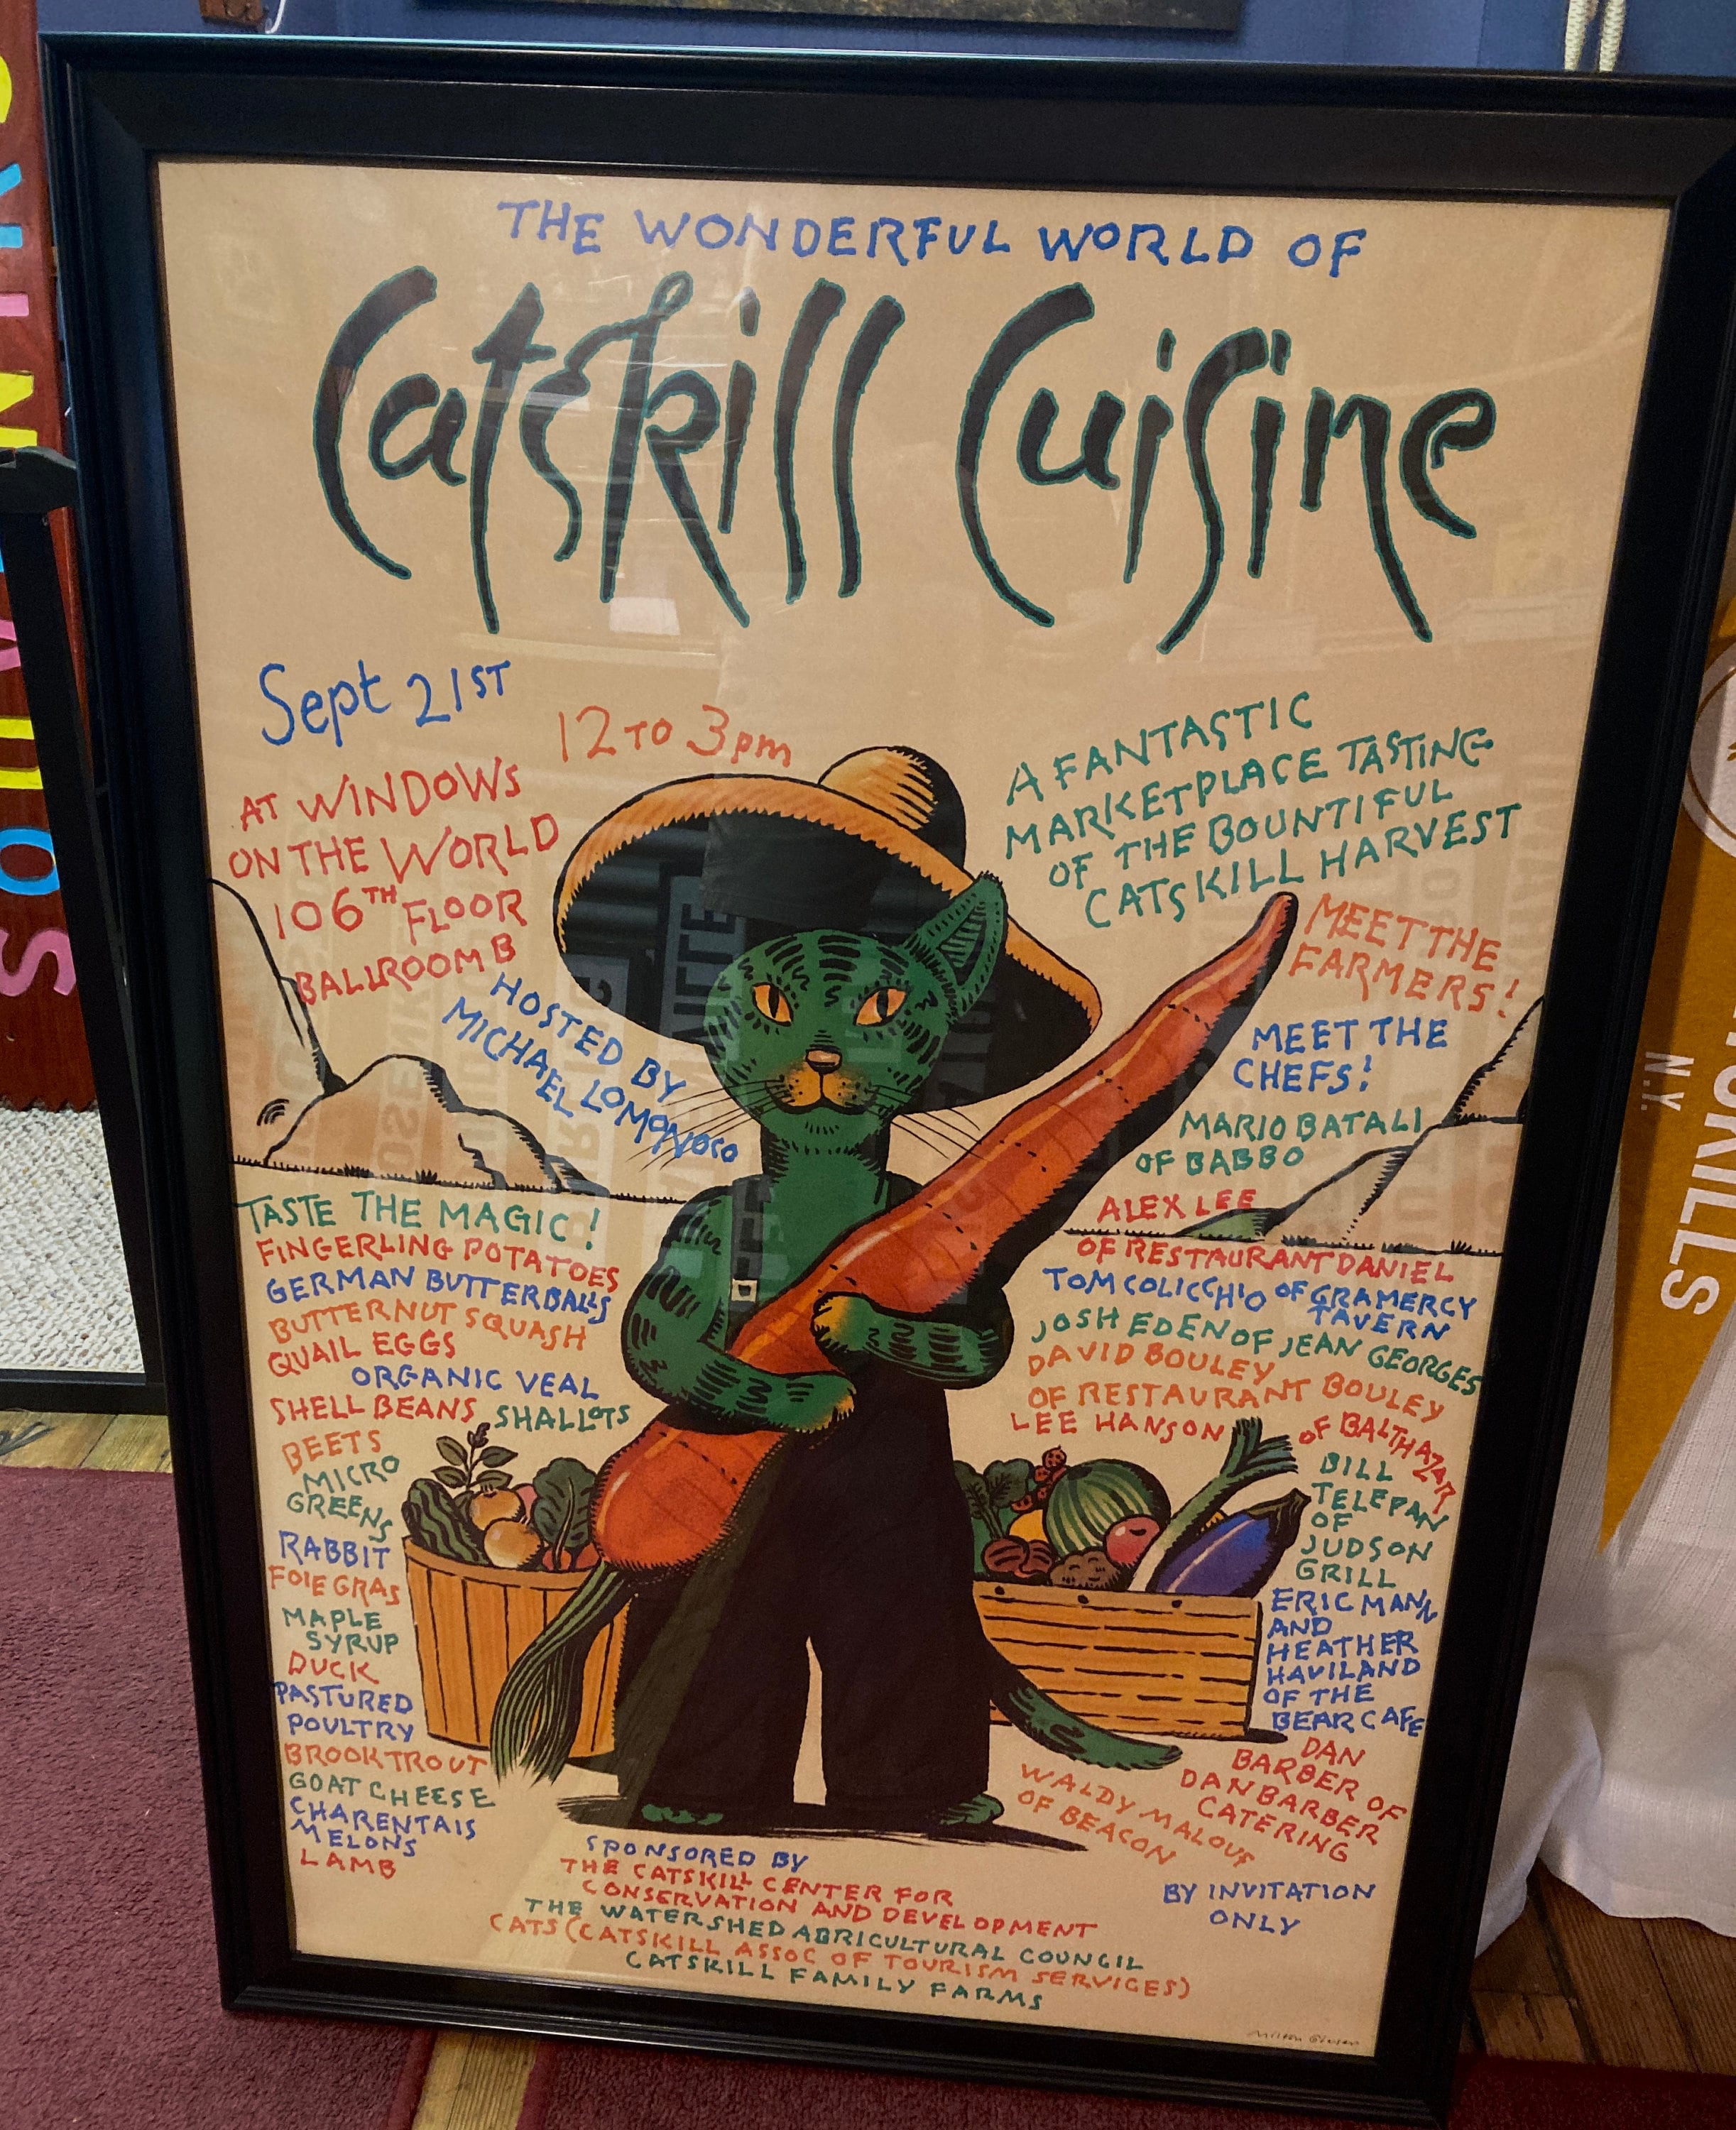 THE WONDERFUL WORLD OF
Catskill Cuisine
Sept 21ST
12 TO 3pm
AT WINDOWS
ON THE WORLD
106TH FLOOR
BALLROOM B
HOSTED BY
MICHAEL LOMONOCO
A FANTASTIC
MARKETPLACE TASTING
OF THE BOUNTIFUL
CATSKILL HARVEST
MEET THE
FARMERS!
MEET THE
CHEFS!
MARIO BATALI
OF BABBO
ALEX LEE
OF RESTAURANT DANIEL
TOM COLICCHIO OF GRAMERCY
TAVERN
JOSH EDEN OF JEAN GEORGES
DAVID BOULEY
OF RESTAURANT BOULEY
LEE HANSON
OF BALTHAZAR
BILL
TELEPAN
OF
JUDSON
GRILL
ERIC MANN
AND
HEATHER
HAVILAND
OF THE
BEAR CAFE
DAN
BARBER OF
DAN BARBER
CATERING
WALDY MALOUF
OF BEACON
BY INVITATION
ONLY
TASTE THE MAGIC!
FINGERLING POTATOES
GERMAN BUTTERBALLS
BUTTERNUT SQUASH
QUAIL EGGS
ORGANIC VEAL
SHELL BEANS SHALLOTS
BEETS
MICRO
GREENS
RABBIT
FOIE GRAS
MAPLE
SYRUP
DUCK
PASTURED
POULTRY
BROOK TROUT
GOAT CHEESE
CHARENTAIS
MELONS
LAMB
SPONSORED BY
THE CATSKILL CENTER FOR
CONSERVATION AND DEVELOPMENT
THE WATERSHED AGRICULTURAL COUNCIL
CATS (CATSKILL ASSOC OF TOURISM SERVICES)
CATSKILL FAMILY FARMS
Milton Glaser
N.Y.